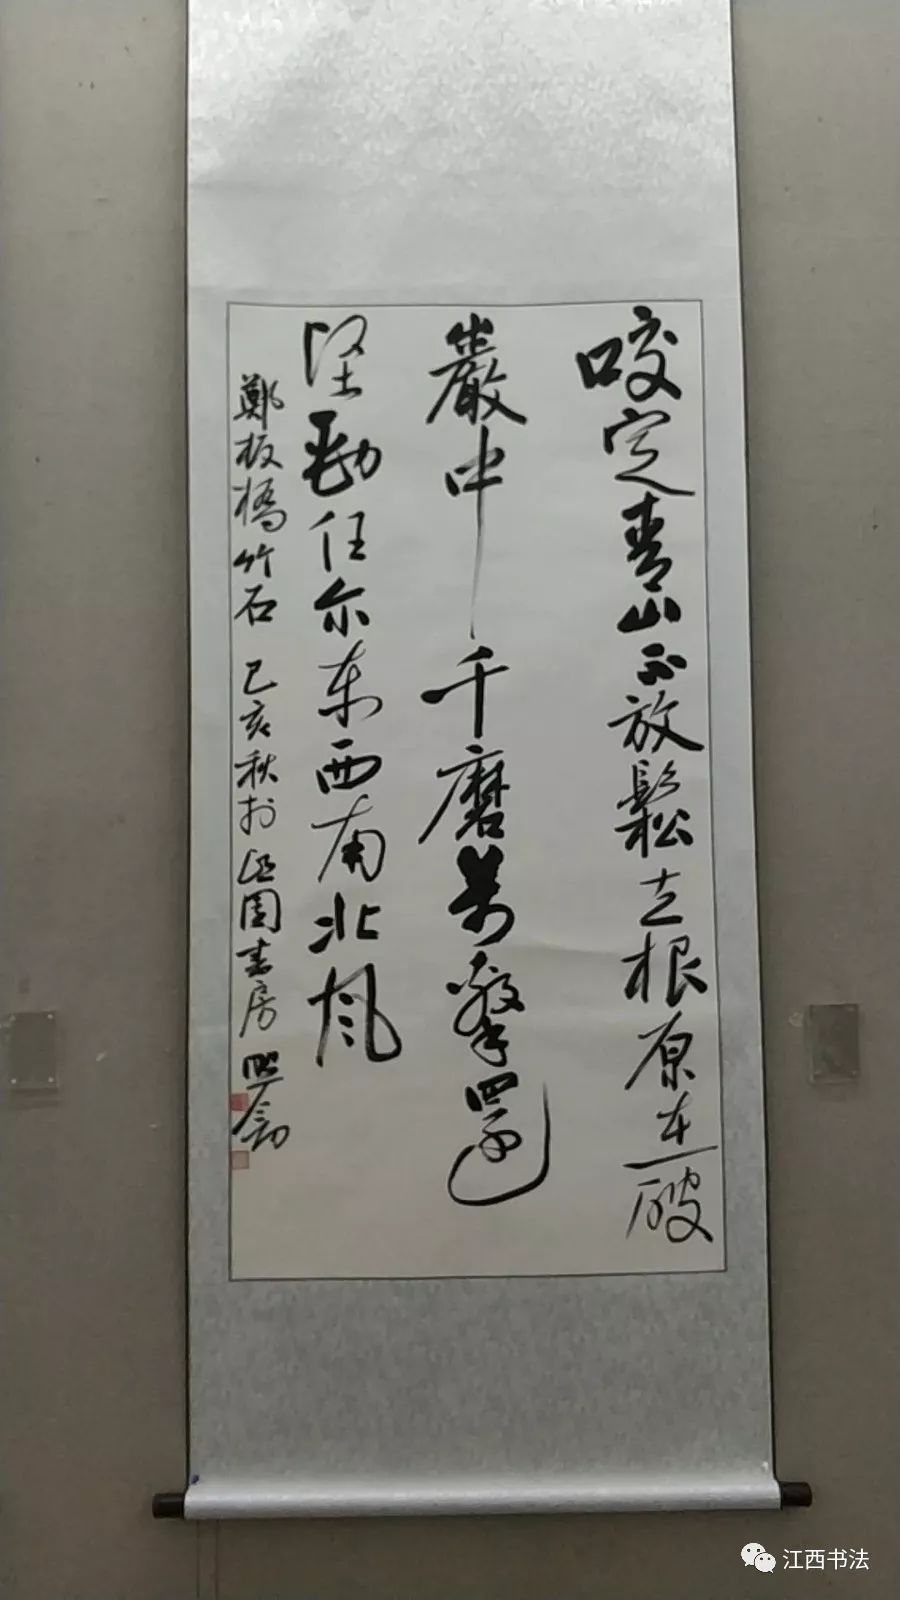 咬定青山不放鬆立根原在破
巖中千磨萬擊還
坚勁任尔东西南北风
鄭板橋竹石 己亥秋於園書房
江西书法